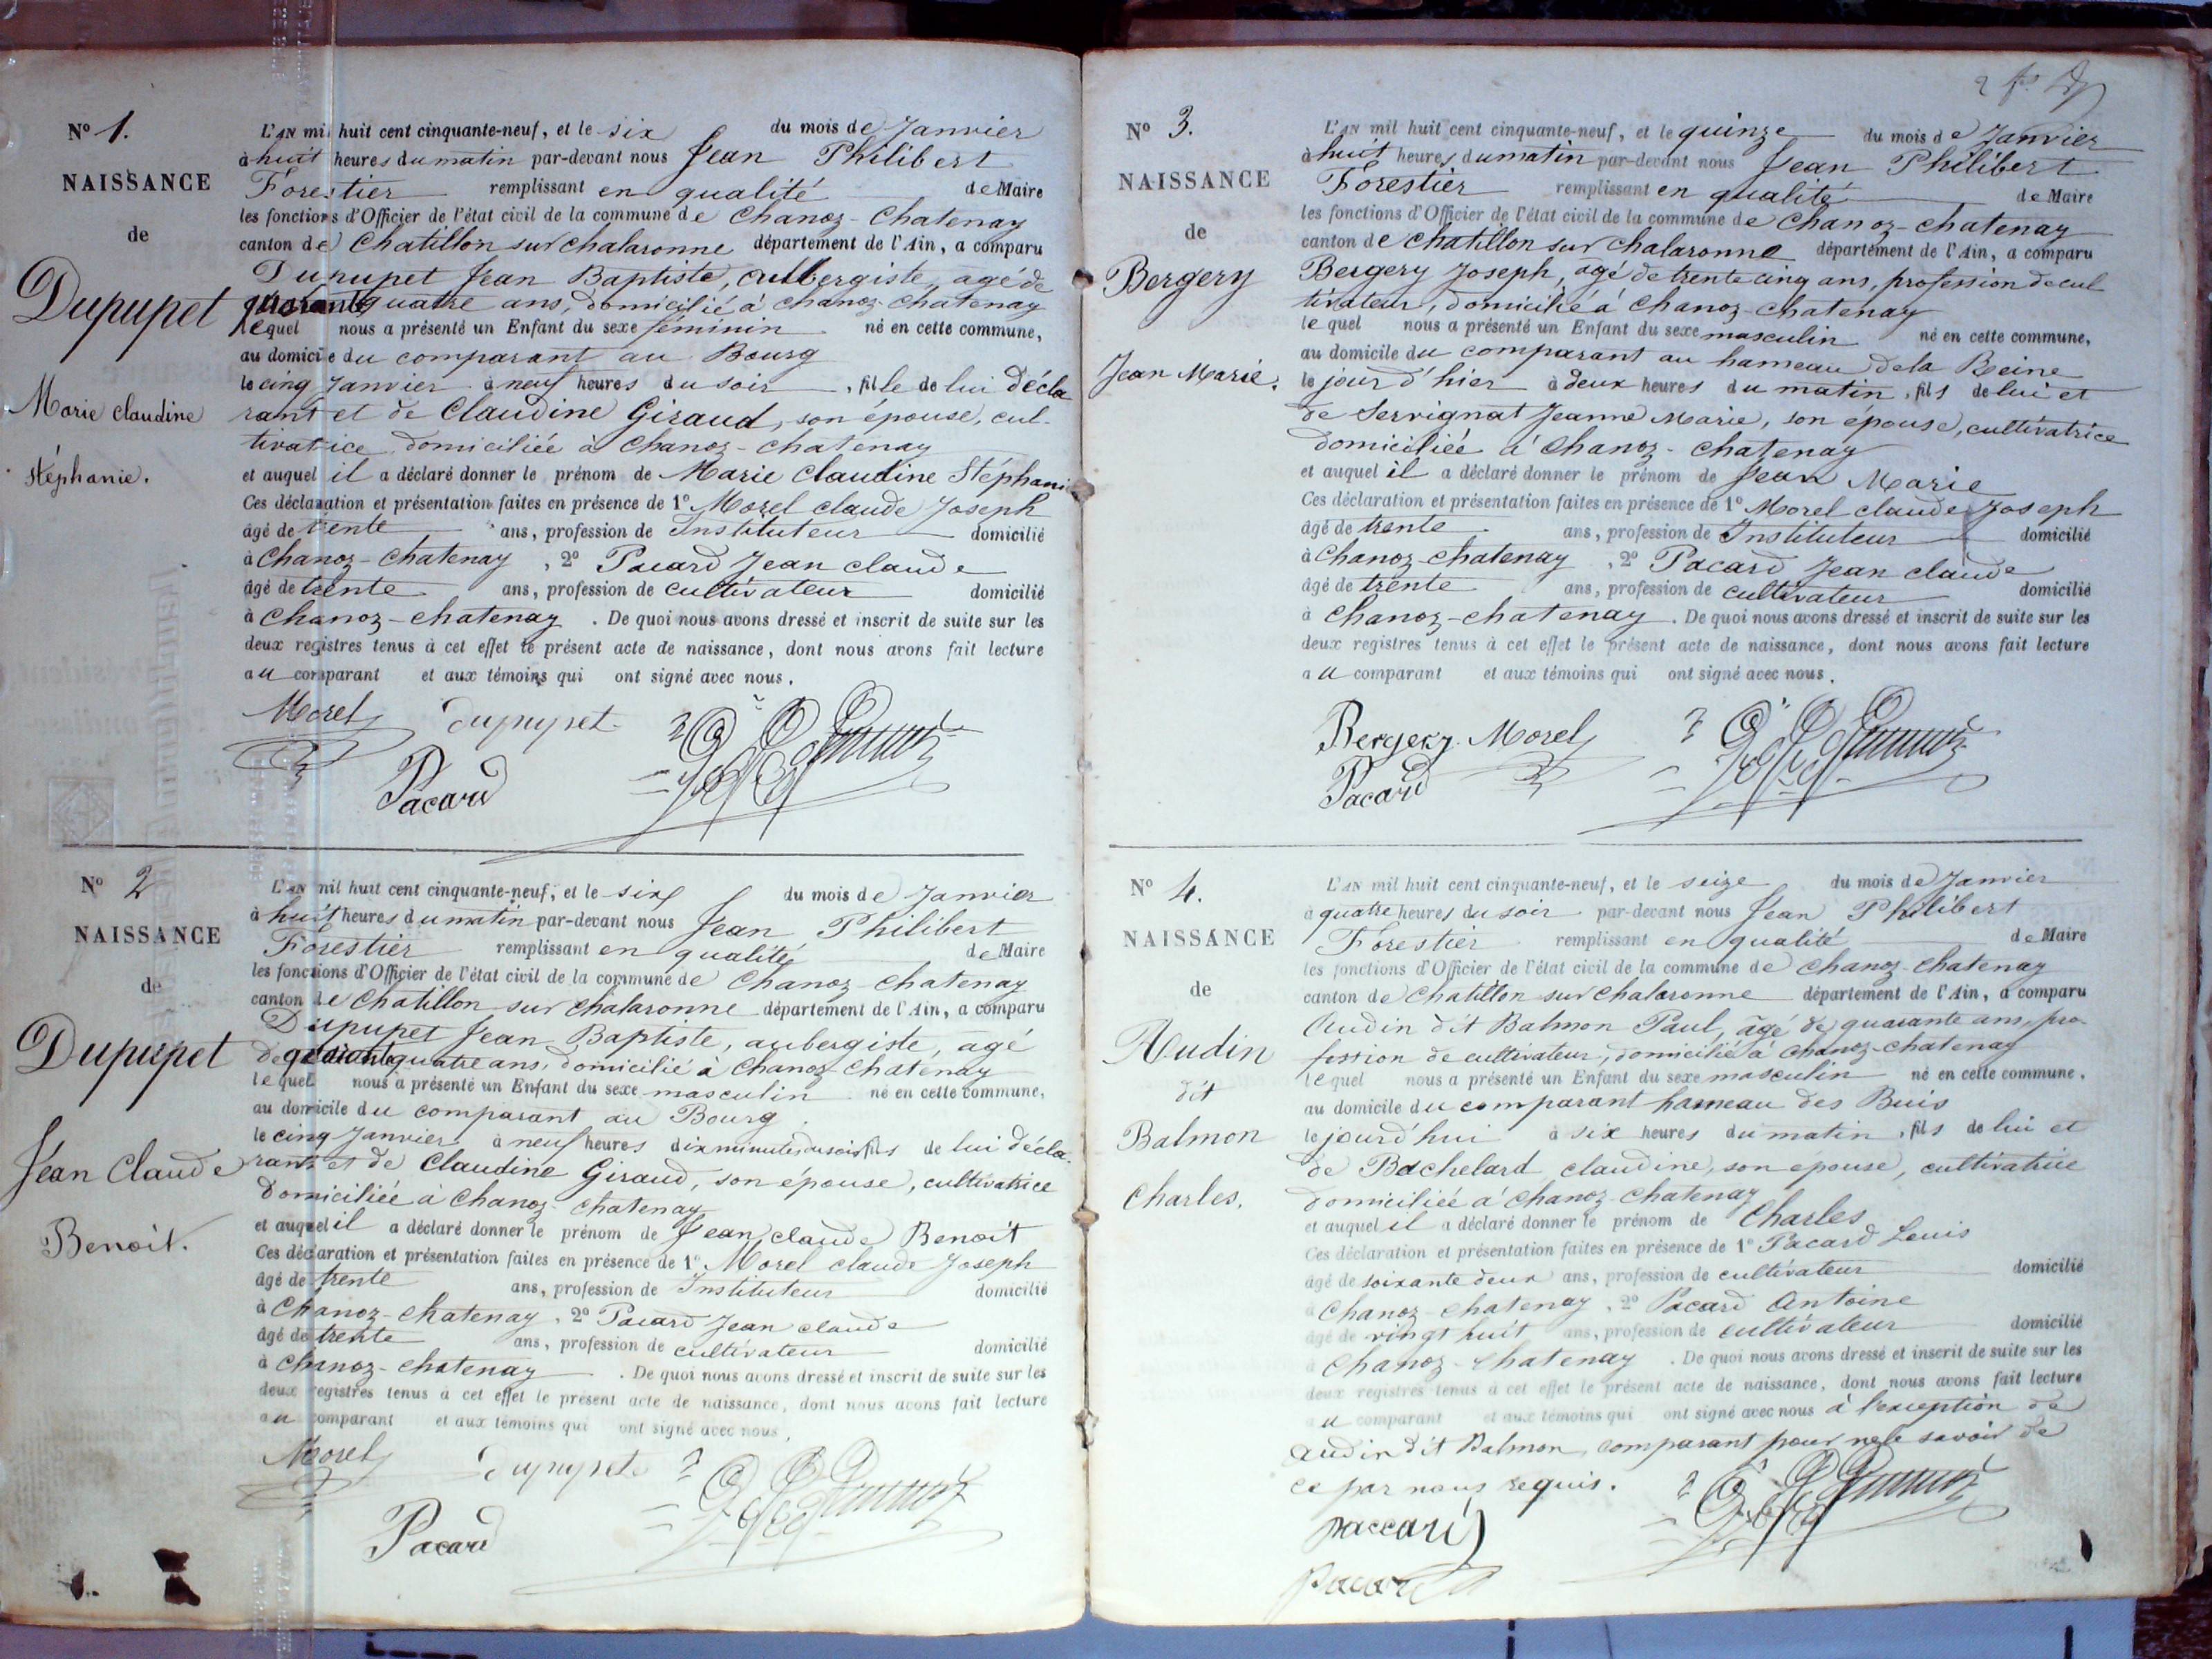 N° 1.
NAISSANCE
de
Dupupet
Marie Claudine
Stéphanie.
L'AN mil huit cent cinquante-neuf, et le six du mois de Janvier
à huit heures du matin par-devant nous Jean Philibert
Forestier remplissant en qualité de Maire
les fonctions d'Officier de l'état civil de la commune de Chanoz-Chatenay
canton de Chatillon sur chalaronne département de l'Ain, a comparu
Dupupet Jean Baptiste, aubergiste, agé de
quarante quatre ans, domicilié à Chanoz-Chatenay
lequel nous a présenté un Enfant du sexe féminin né en cette commune,
au domicile du comparant au Bourg
le cinq Janvier à neuf heures du soir, fille de lui décla
rant et de Claudine Giraud, son épouse, cul-
tivatrice domiciliée à Chanoz-chatenay
et auquel il a déclaré donner le prénom de Marie Claudine Stéphanie
Ces déclaration et présentation faites en présence de 1° Morel claude Joseph
âgé de trente ans, profession de Instituteur domicilié
à Chanoz-Chatenay, 2° Pacard Jean claude
âgé de trente ans, profession de cultivateur domicilié
à Chanoz-chatenay. De quoi nous avons dressé et inscrit de suite sur les
deux registres tenus à cet effet le présent acte de naissance, dont nous avons fait lecture
au comparant et aux témoins qui ont signé avec nous.
Morel dupupet
Pacard
N° 2
NAISSANCE
de
Dupupet
Jean Claude
Benoit.
L'AN mil huit cent cinquante-neuf, et le six du mois de Janvier
à huit heures du matin par-devant nous Jean Philibert
Forestier remplissant en qualité de Maire
les fonctions d'Officier de l'état civil de la commune de Chanoz-chatenay
canton de Chatillon sur chalaronne département de l'Ain, a comparu
Dupupet Jean Baptiste, aubergiste, agé
de quarante quatre ans, domicilié à Chanoz Chatenay
lequel nous a présenté un Enfant du sexe masculin né en cette commune,
au domicile du comparant au Bourg
le cinq Janvier à neuf heures dix minutes du soir fils de lui décla-
rant et de Claudine Giraud, son épouse, cultivatrice
domiciliée à Chanoz-chatenay
et auquel il a déclaré donner le prénom de Jean claude Benoit
Ces déclaration et présentation faites en présence de 1° Morel claude Joseph
âgé de trente ans, profession de Instituteur domicilié
à Chanoz-chatenay, 2° Pacard Jean claude
âgé de trente ans, profession de cultivateur domicilié
à Chanoz-chatenay. De quoi nous avons dressé et inscrit de suite sur les
deux registres tenus à cet effet le présent acte de naissance, dont nous avons fait lecture
au comparant et aux témoins qui ont signé avec nous.
Morel dupupet
Pacard
N° 3.
NAISSANCE
de
Bergery
Jean Marie.
L'AN mil huit cent cinquante-neuf, et le quinze du mois de Janvier
à huit heures du matin par-devant nous Jean Philibert
Forestier remplissant en qualité de Maire
les fonctions d'Officier de l'état civil de la commune de Chanoz-chatenay
canton de Chatillon sur chalaronne département de l'Ain, a comparu
Bergery Joseph, âgé de trente cinq ans, profession de cul
tivateur, domicilié à Chanoz-Chatenay
lequel nous a présenté un Enfant du sexe masculin né en cette commune,
au domicile du comparant au hameau de la Reine
le jour d'hier à deux heures du matin, fils de lui et
de Servignat Jeanne Marie, son épouse, cultivatrice
domiciliée à Chanoz-chatenay
et auquel il a déclaré donner le prénom de Jean Marie
Ces déclaration et présentation faites en présence de 1° Morel claude Joseph
âgé de trente ans, profession de Instituteur domicilié
à Chanoz-chatenay, 2° Pacard Jean claude
âgé de trente ans, profession de cultivateur domicilié
à Chanoz-chatenay. De quoi nous avons dressé et inscrit de suite sur les
deux registres tenus à cet effet le présent acte de naissance, dont nous avons fait lecture
au comparant et aux témoins qui ont signé avec nous.
Bergery Morel
Pacard
N° 4.
NAISSANCE
de
Audin
dit
Balmon
Charles.
L'AN mil huit cent cinquante-neuf, et le seize du mois de Janvier
à quatre heures du soir par-devant nous Jean Philibert
Forestier remplissant en qualité de Maire
les fonctions d'Officier de l'état civil de la commune de Chanoz-chatenay
canton de Chatillon sur chalaronne département de l'Ain, a comparu
Audin dit Balmon Paul, âgé de quarante ans, pro-
fession de cultivateur, domicilié à Chanoz-chatenay
lequel nous a présenté un Enfant du sexe masculin né en cette commune,
au domicile du comparant hameau des Buis
le jourd'hui à six heures du matin, fils de lui et
de Bachelard claudine, son épouse, cultivatrice
domiciliée à Chanoz-Chatenay
et auquel il a déclaré donner le prénom de Charles
Ces déclaration et présentation faites en présence de 1° Pacard Louis
âgé de soixante deux ans, profession de cultivateur domicilié
à Chanoz-chatenay, 2° Pacard Antoine
âgé de vingt huit ans, profession de cultivateur domicilié
à Chanoz-Chatenay. De quoi nous avons dressé et inscrit de suite sur les
deux registres tenus à cet effet le présent acte de naissance, dont nous avons fait lecture
au comparant et aux témoins qui ont signé avec nous à l'exception de
Audin dit Balmon, comparant pour ne le savoir de
ce par nous requis.
paccard
pacard